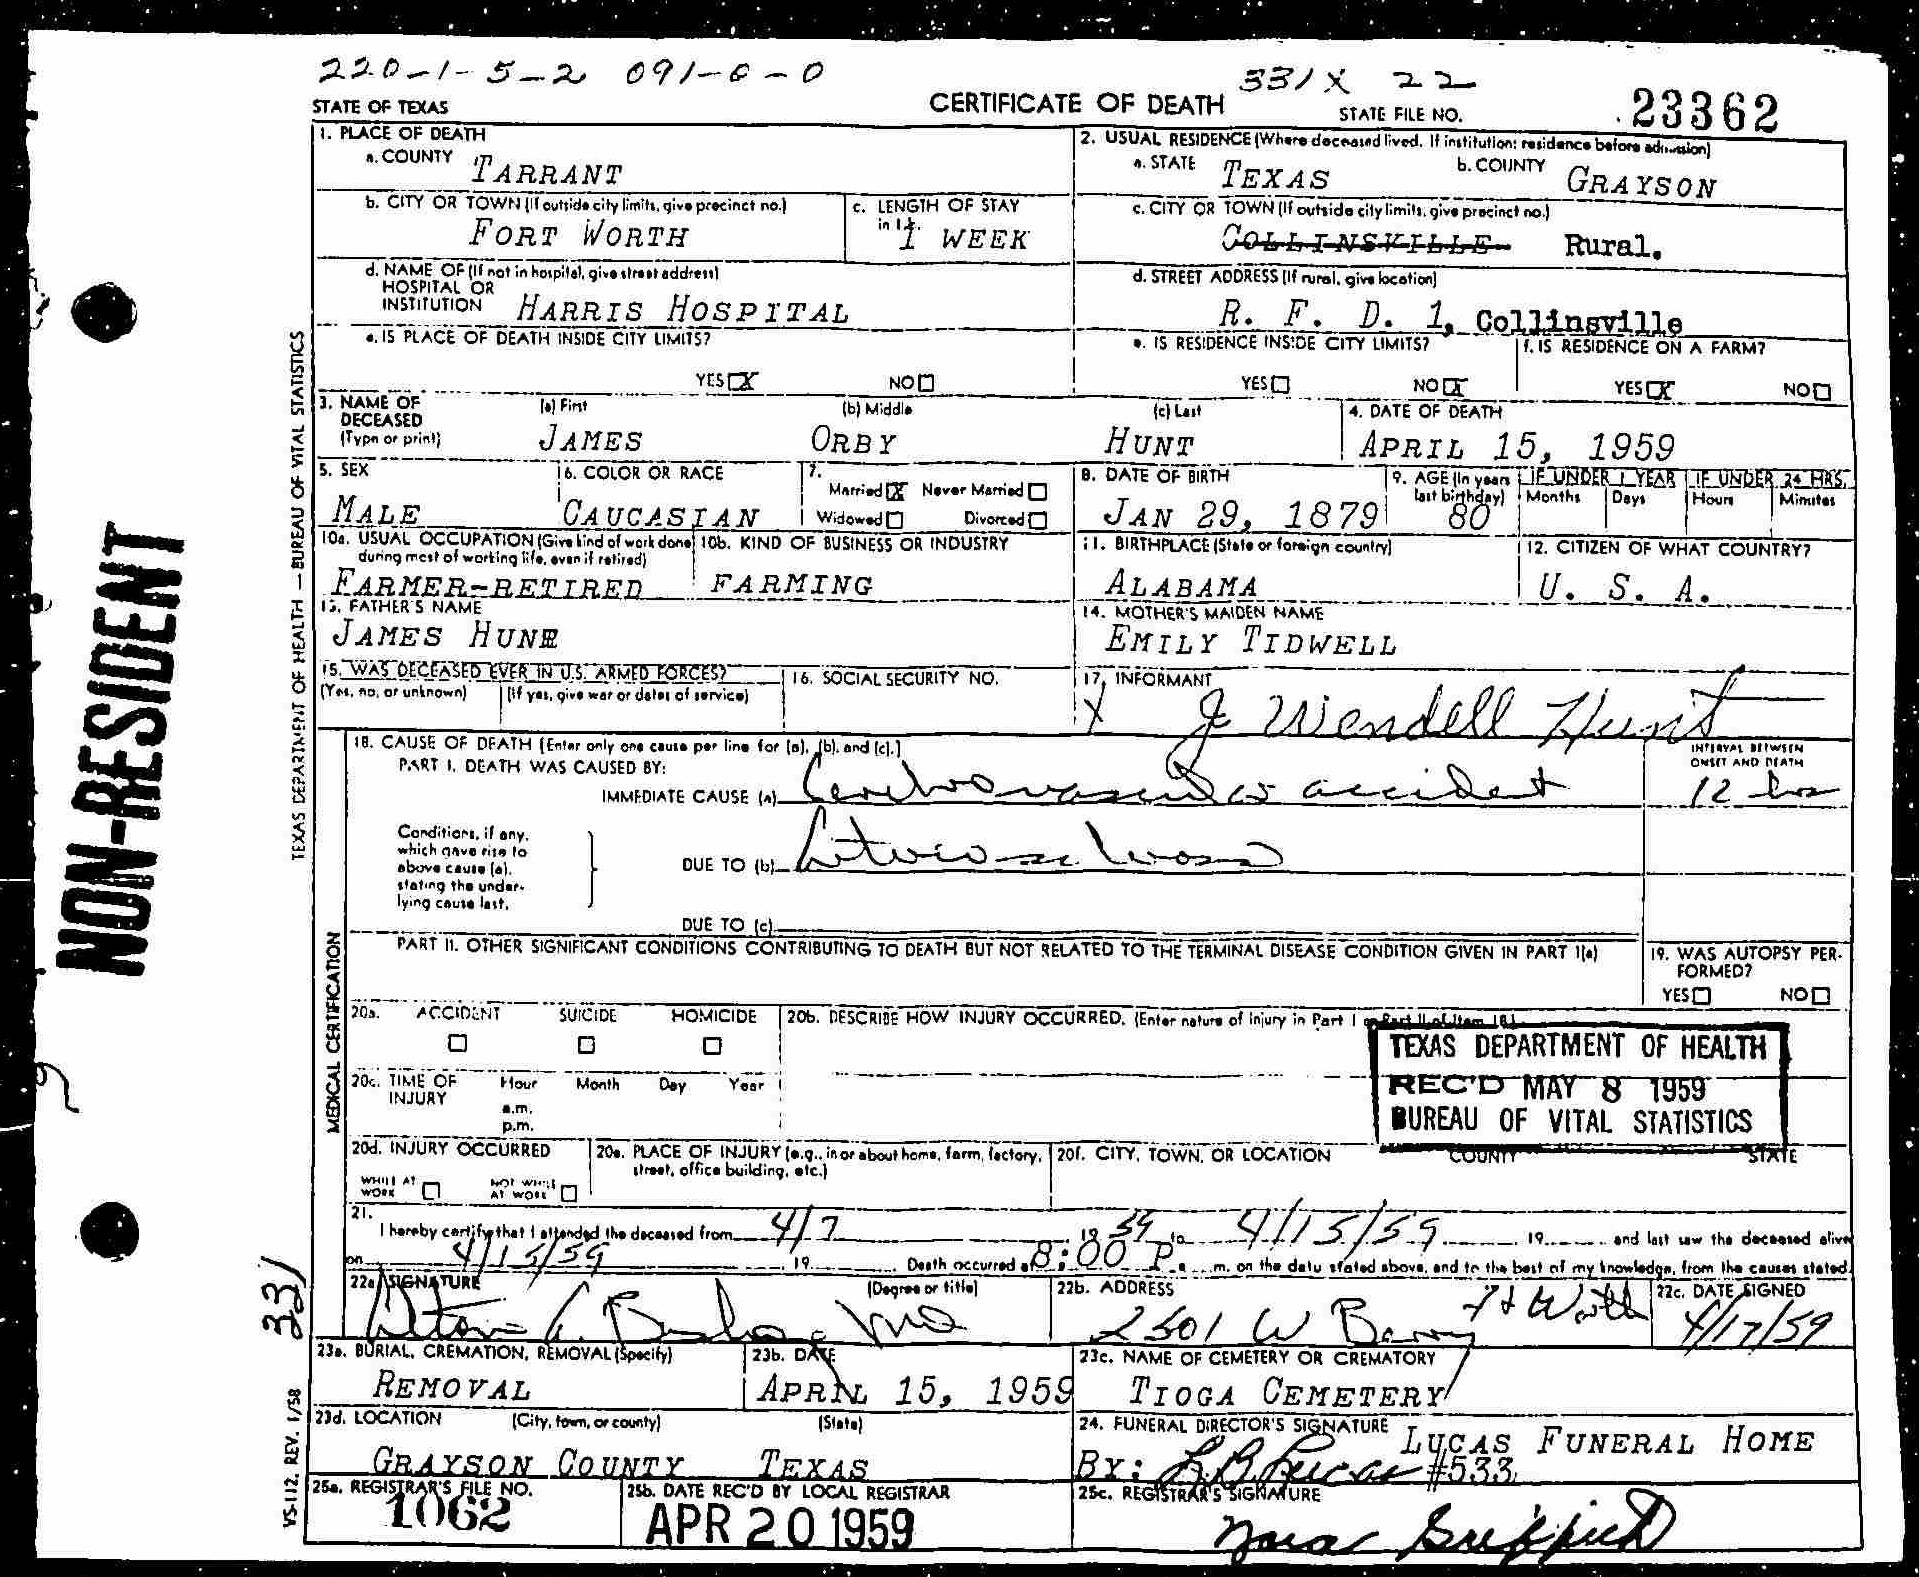 220-1-5-2 091-0-0
331X 22
STATE OF TEXAS
CERTIFICATE OF DEATH
STATE FILE NO.
23362
1. PLACE OF DEATH
a. COUNTY TARRANT
b. CITY OR TOWN (If outside city limits, give precinct no.)
FORT WORTH
c. LENGTH OF STAY
in 1b.
1 WEEK
d. NAME OF (If not in hospital, give street address)
HOSPITAL OR
INSTITUTION HARRIS HOSPITAL
e. IS PLACE OF DEATH INSIDE CITY LIMITS?
YES X NO
2. USUAL RESIDENCE (Where deceased lived. If institution: residence before admission)
a. STATE TEXAS
b. COUNTY GRAYSON
c. CITY OR TOWN (If outside city limits, give precinct no.)
COLLINSVILLE Rural.
d. STREET ADDRESS (If rural, give location)
R. F. D. 1, Collinsville
e. IS RESIDENCE INSIDE CITY LIMITS?
YES NO X
f. IS RESIDENCE ON A FARM?
YES X NO
3. NAME OF
DECEASED
(Type or print)
(a) First
JAMES
(b) Middle
ORBY
(c) Last
HUNT
4. DATE OF DEATH
APRIL 15, 1959
5. SEX
MALE
6. COLOR OR RACE
CAUCASIAN
7.
Married X Never Married
Widowed Divorced
8. DATE OF BIRTH
JAN 29, 1879
9. AGE (In years
last birthday)
80
IF UNDER 1 YEAR
Months Days
IF UNDER 24 HRS.
Hours Minutes
10a. USUAL OCCUPATION (Give kind of work done
during most of working life, even if retired)
FARMER-RETIRED
10b. KIND OF BUSINESS OR INDUSTRY
FARMING
11. BIRTHPLACE (State or foreign country)
ALABAMA
12. CITIZEN OF WHAT COUNTRY?
U. S. A.
13. FATHER'S NAME
JAMES HUNT
14. MOTHER'S MAIDEN NAME
EMILY TIDWELL
15. WAS DECEASED EVER IN U.S. ARMED FORCES?
(Yes, no, or unknown) (If yes, give war or dates of service)
16. SOCIAL SECURITY NO.
17. INFORMANT
X J Wendell Hunt
18. CAUSE OF DEATH (Enter only one cause per line for (a), (b), and (c).)
PART I. DEATH WAS CAUSED BY:
IMMEDIATE CAUSE (a) Cerebrovascular accident
INTERVAL BETWEEN
ONSET AND DEATH
12 hrs
Conditions, if any,
which gave rise to
above cause (a),
stating the under-
lying cause last.
DUE TO (b) Arteriosclerosis
DUE TO (c)
PART II. OTHER SIGNIFICANT CONDITIONS CONTRIBUTING TO DEATH BUT NOT RELATED TO THE TERMINAL DISEASE CONDITION GIVEN IN PART I(a)
19. WAS AUTOPSY PER-
FORMED?
YES NO
20a. ACCIDENT SUICIDE HOMICIDE
20b. DESCRIBE HOW INJURY OCCURRED. (Enter nature of injury in Part I or Part II of Item 18.)
TEXAS DEPARTMENT OF HEALTH
REC'D MAY 8 1959
BUREAU OF VITAL STATISTICS
20c. TIME OF
INJURY
Hour Month Day Year
a.m.
p.m.
20d. INJURY OCCURRED
WHILE AT
WORK
NOT WHILE
AT WORK
20e. PLACE OF INJURY (e.g., in or about home, farm, factory,
street, office building, etc.)
20f. CITY, TOWN, OR LOCATION COUNTY STATE
21.
I hereby certify that I attended the deceased from 4/7 1959 to 4/15/59 19 and last saw the deceased alive
on 4/15/59 19 Death occurred at 8:00 P. m. on the date stated above, and to the best of my knowledge, from the causes stated.
22a. SIGNATURE (Degree or title)
MD
22b. ADDRESS
2501 W Berry Ft Worth
22c. DATE SIGNED
4/17/59
23a. BURIAL, CREMATION, REMOVAL (Specify)
REMOVAL
23b. DATE
APRIL 15, 1959
23c. NAME OF CEMETERY OR CREMATORY
TIOGA CEMETERY
23d. LOCATION (City, town, or county) (State)
GRAYSON COUNTY TEXAS
24. FUNERAL DIRECTOR'S SIGNATURE LUCAS FUNERAL HOME
BY: L B Lucas #533
25a. REGISTRAR'S FILE NO.
1062
25b. DATE REC'D BY LOCAL REGISTRAR
APR 20 1959
25c. REGISTRAR'S SIGNATURE
NON-RESIDENT
TEXAS DEPARTMENT OF HEALTH — BUREAU OF VITAL STATISTICS
MEDICAL CERTIFICATION
331
VS-112, REV. 1/58